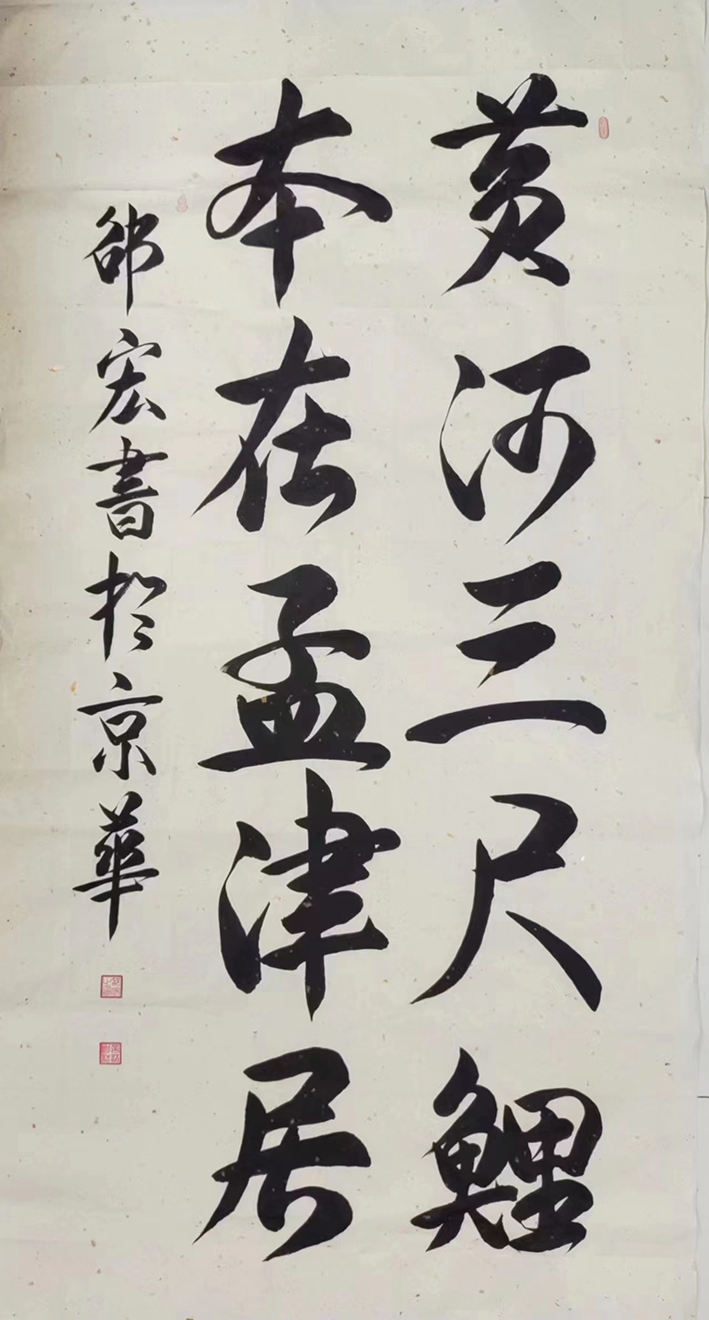 黄河三尺鲤
本在孟津居
邵宏書於京華